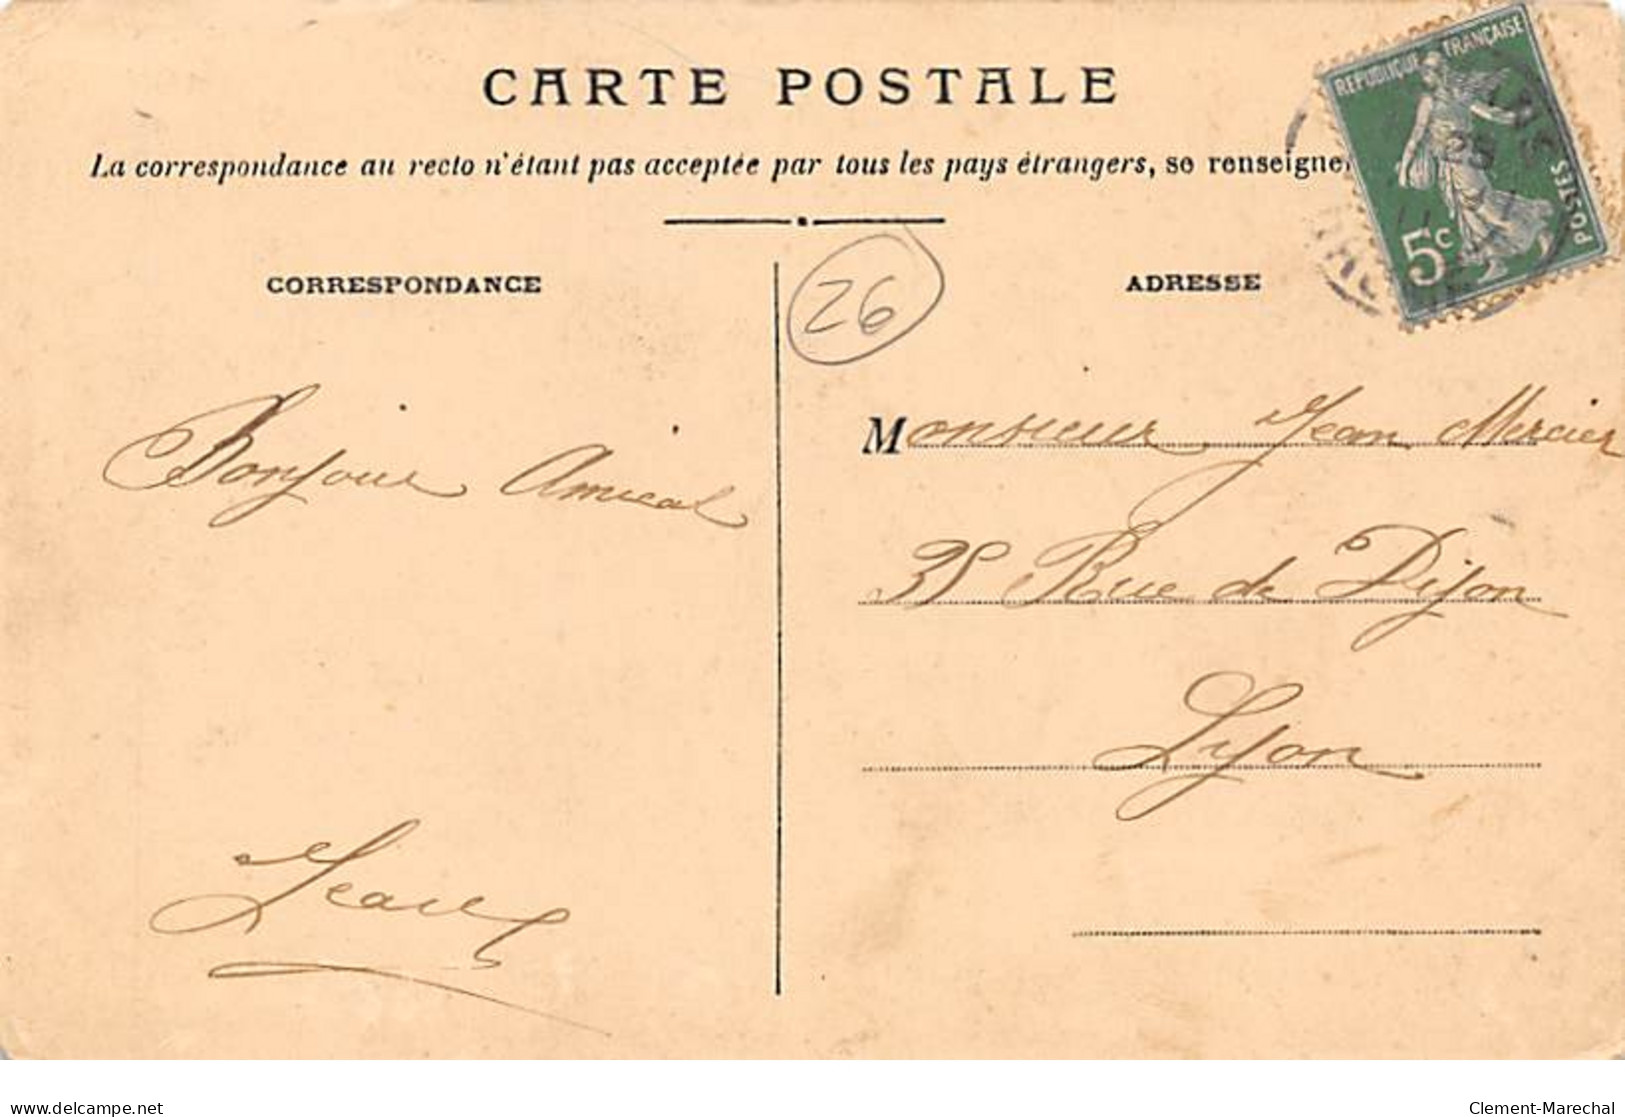 CARTE POSTALE
La correspondance au recto n'étant pas acceptée par tous les pays étrangers, se renseigner
RÉPUBLIQUE FRANÇAISE
POSTES
5c
CORRESPONDANCE
26
ADRESSE
Bonjour Amical
Monsieur Jean Mercier
35 Rue de Dijon
Lyon
delcampe.net
Clement-Marechal